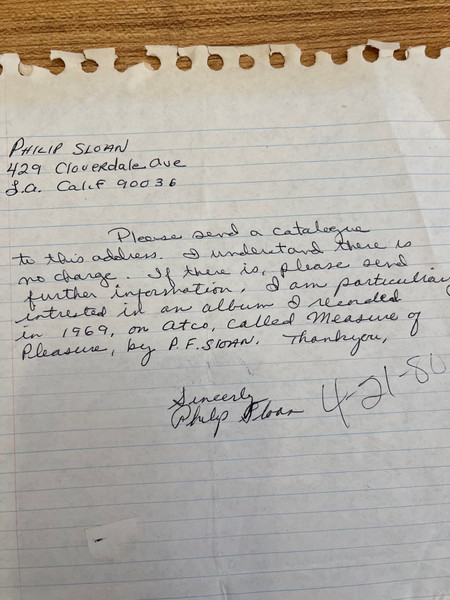 PHILIP SLOAN
429 Cloverdale Ave
L.A. Calif 90036
Please send a catalogue
to this address. I understand there is
no charge. If there is, please send
further information. I am particuliary
intrested in an album I recorded
in 1969, on Atco, called Measure of
Pleasure, by P.F. SLOAN. Thankyou,
Sincerly
Philip Sloan
4-21-80